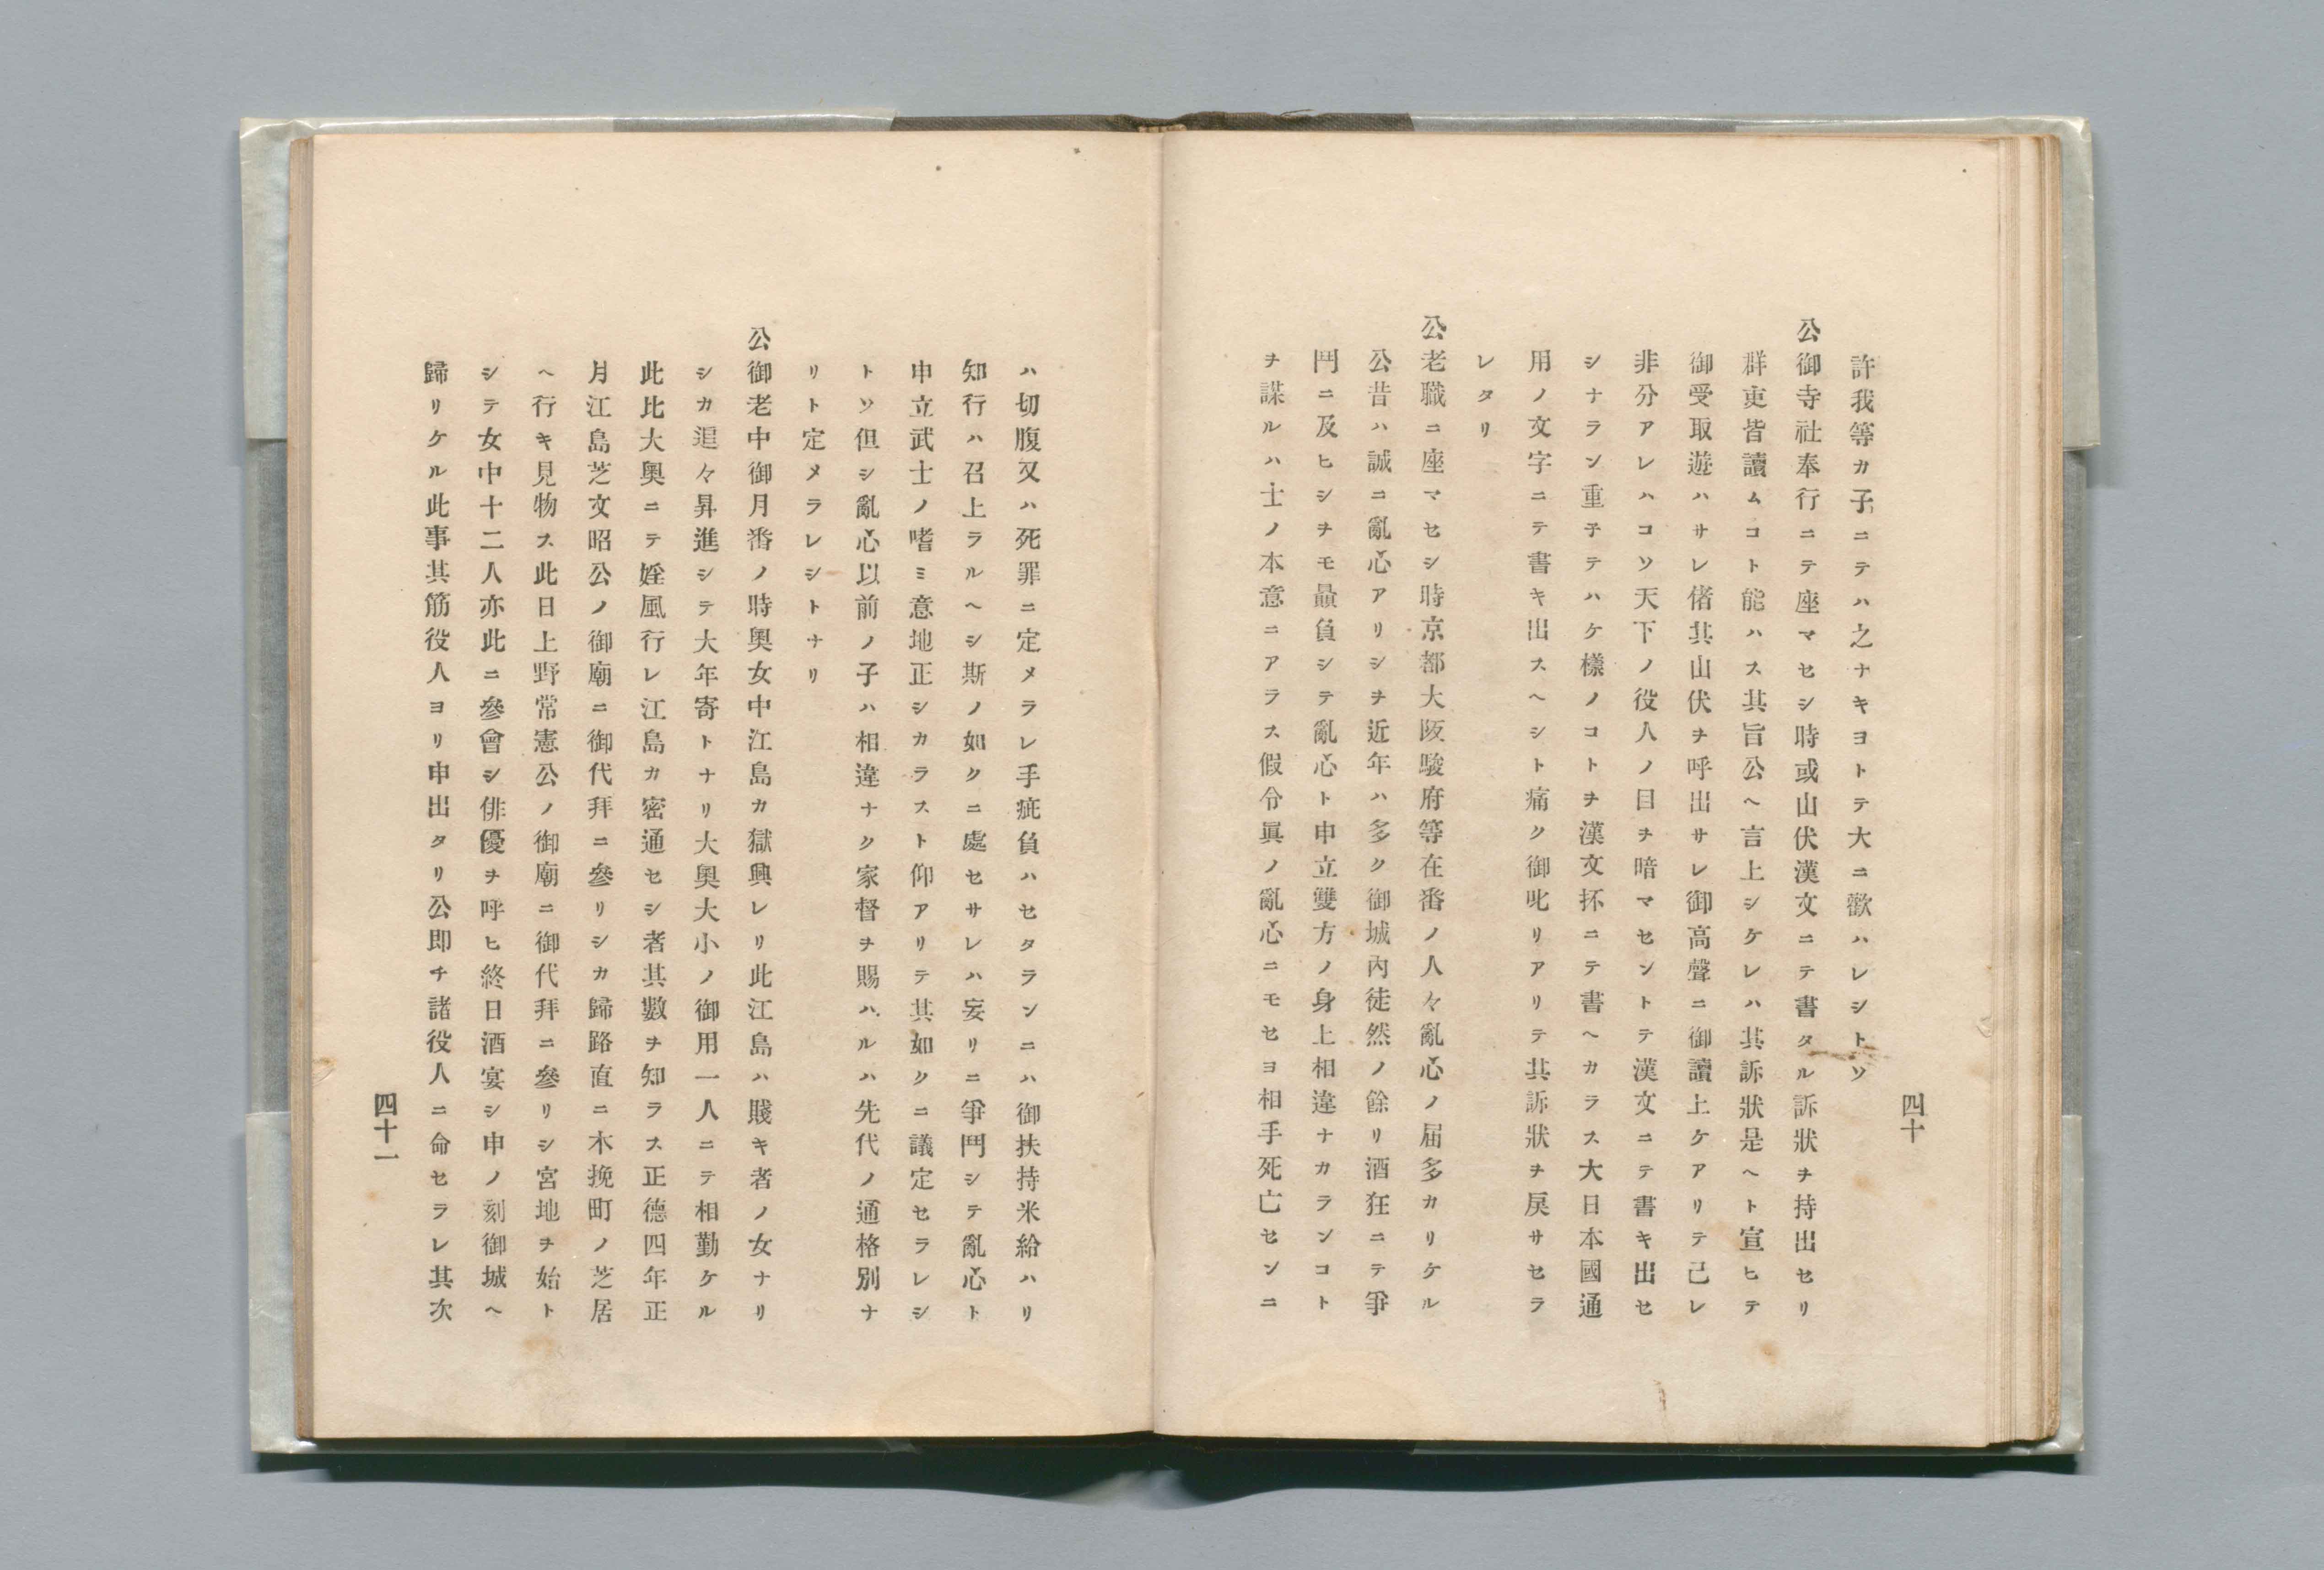 四十
許我等カ子ニテハ之ナキヨトテ大ニ歡ハレシトソ
公御寺社奉行ニテ座マセシ時或山伏漢文ニテ書タル訴狀ヲ持出セリ
群吏皆讀ムコト能ハス其旨公ヘ言上シケレハ其訴狀是ヘト宣ヒテ
御受取遊ハサレ偖其山伏ヲ呼出サレ御高聲ニ御讀上ケアリテ己レ
非分アレハコソ天下ノ役人ノ目ヲ暗マセントテ漢文ニテ書キ出セ
シナラン重子テハケ樣ノコトヲ漢文抔ニテ書ヘカラス大日本國通
用ノ文字ニテ書キ出スヘシト痛ク御叱リアリテ其訴狀ヲ戾サセラ
レタリ
公老職ニ座マセシ時京都大阪駿府等在番ノ人々亂心ノ届多カリケル
公昔ハ誠ニ亂心アリシヲ近年ハ多ク御城內徒然ノ餘リ酒狂ニテ爭
鬥ニ及ヒシヲモ贔負シテ亂心ト申立雙方ノ身上相違ナカランコト
ヲ謀ルハ士ノ本意ニアラス假令眞ノ亂心ニモセヨ相手死亡センニ
ハ切腹又ハ死罪ニ定メラレ手疵負ハセタランニハ御扶持米給ハリ
知行ハ召上ラルヘシ斯ノ如クニ處セサレハ妄リニ爭鬥シテ亂心ト
申立武士ノ嗜ミ意地正シカラスト仰アリテ其如クニ議定セラレシ
トソ但シ亂心以前ノ子ハ相違ナク家督ヲ賜ハルハ先代ノ通格別ナ
リト定メラレシトナリ
公御老中御月番ノ時奧女中江島カ獄興レリ此江島ハ賤キ者ノ女ナリ
シカ追々昇進シテ大年寄トナリ大奧大小ノ御用一人ニテ相勤ケル
此比大奧ニテ婬風行レ江島カ密通セシ者其數ヲ知ラス正德四年正
月江島芝文昭公ノ御廟ニ御代拜ニ參リシカ歸路直ニ木挽町ノ芝居
ヘ行キ見物ス此日上野常憲公ノ御廟ニ御代拜ニ參リシ宮地ヲ始ト
シテ女中十二人亦此ニ參會シ俳優ヲ呼ヒ終日酒宴シ申ノ刻御城ヘ
歸リケル此事其筋役人ヨリ申出タリ公即チ諸役人ニ命セラレ其次
四十一